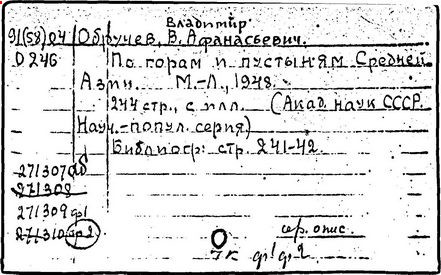 Владимир
91(58)04 Обручев, В. Афанасьевич.
D 246 По горам и пустыням Средней
Азии. М.-Л., 1948.
244 стр., с илл. (Акад. наук СССР.
Науч.-попул. серия)
Библиогр: стр. 241-42.
271307 аб
271308
271309 ф1
271310 ф2
сер. опис.
7к ф1 ф2